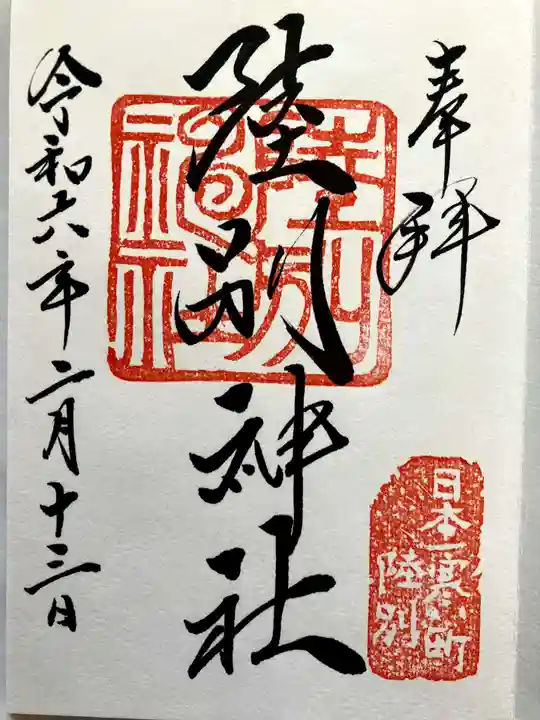 奉拝
陸別神社
陸別神社
日本一寒い町
陸別
令和六年二月十三日